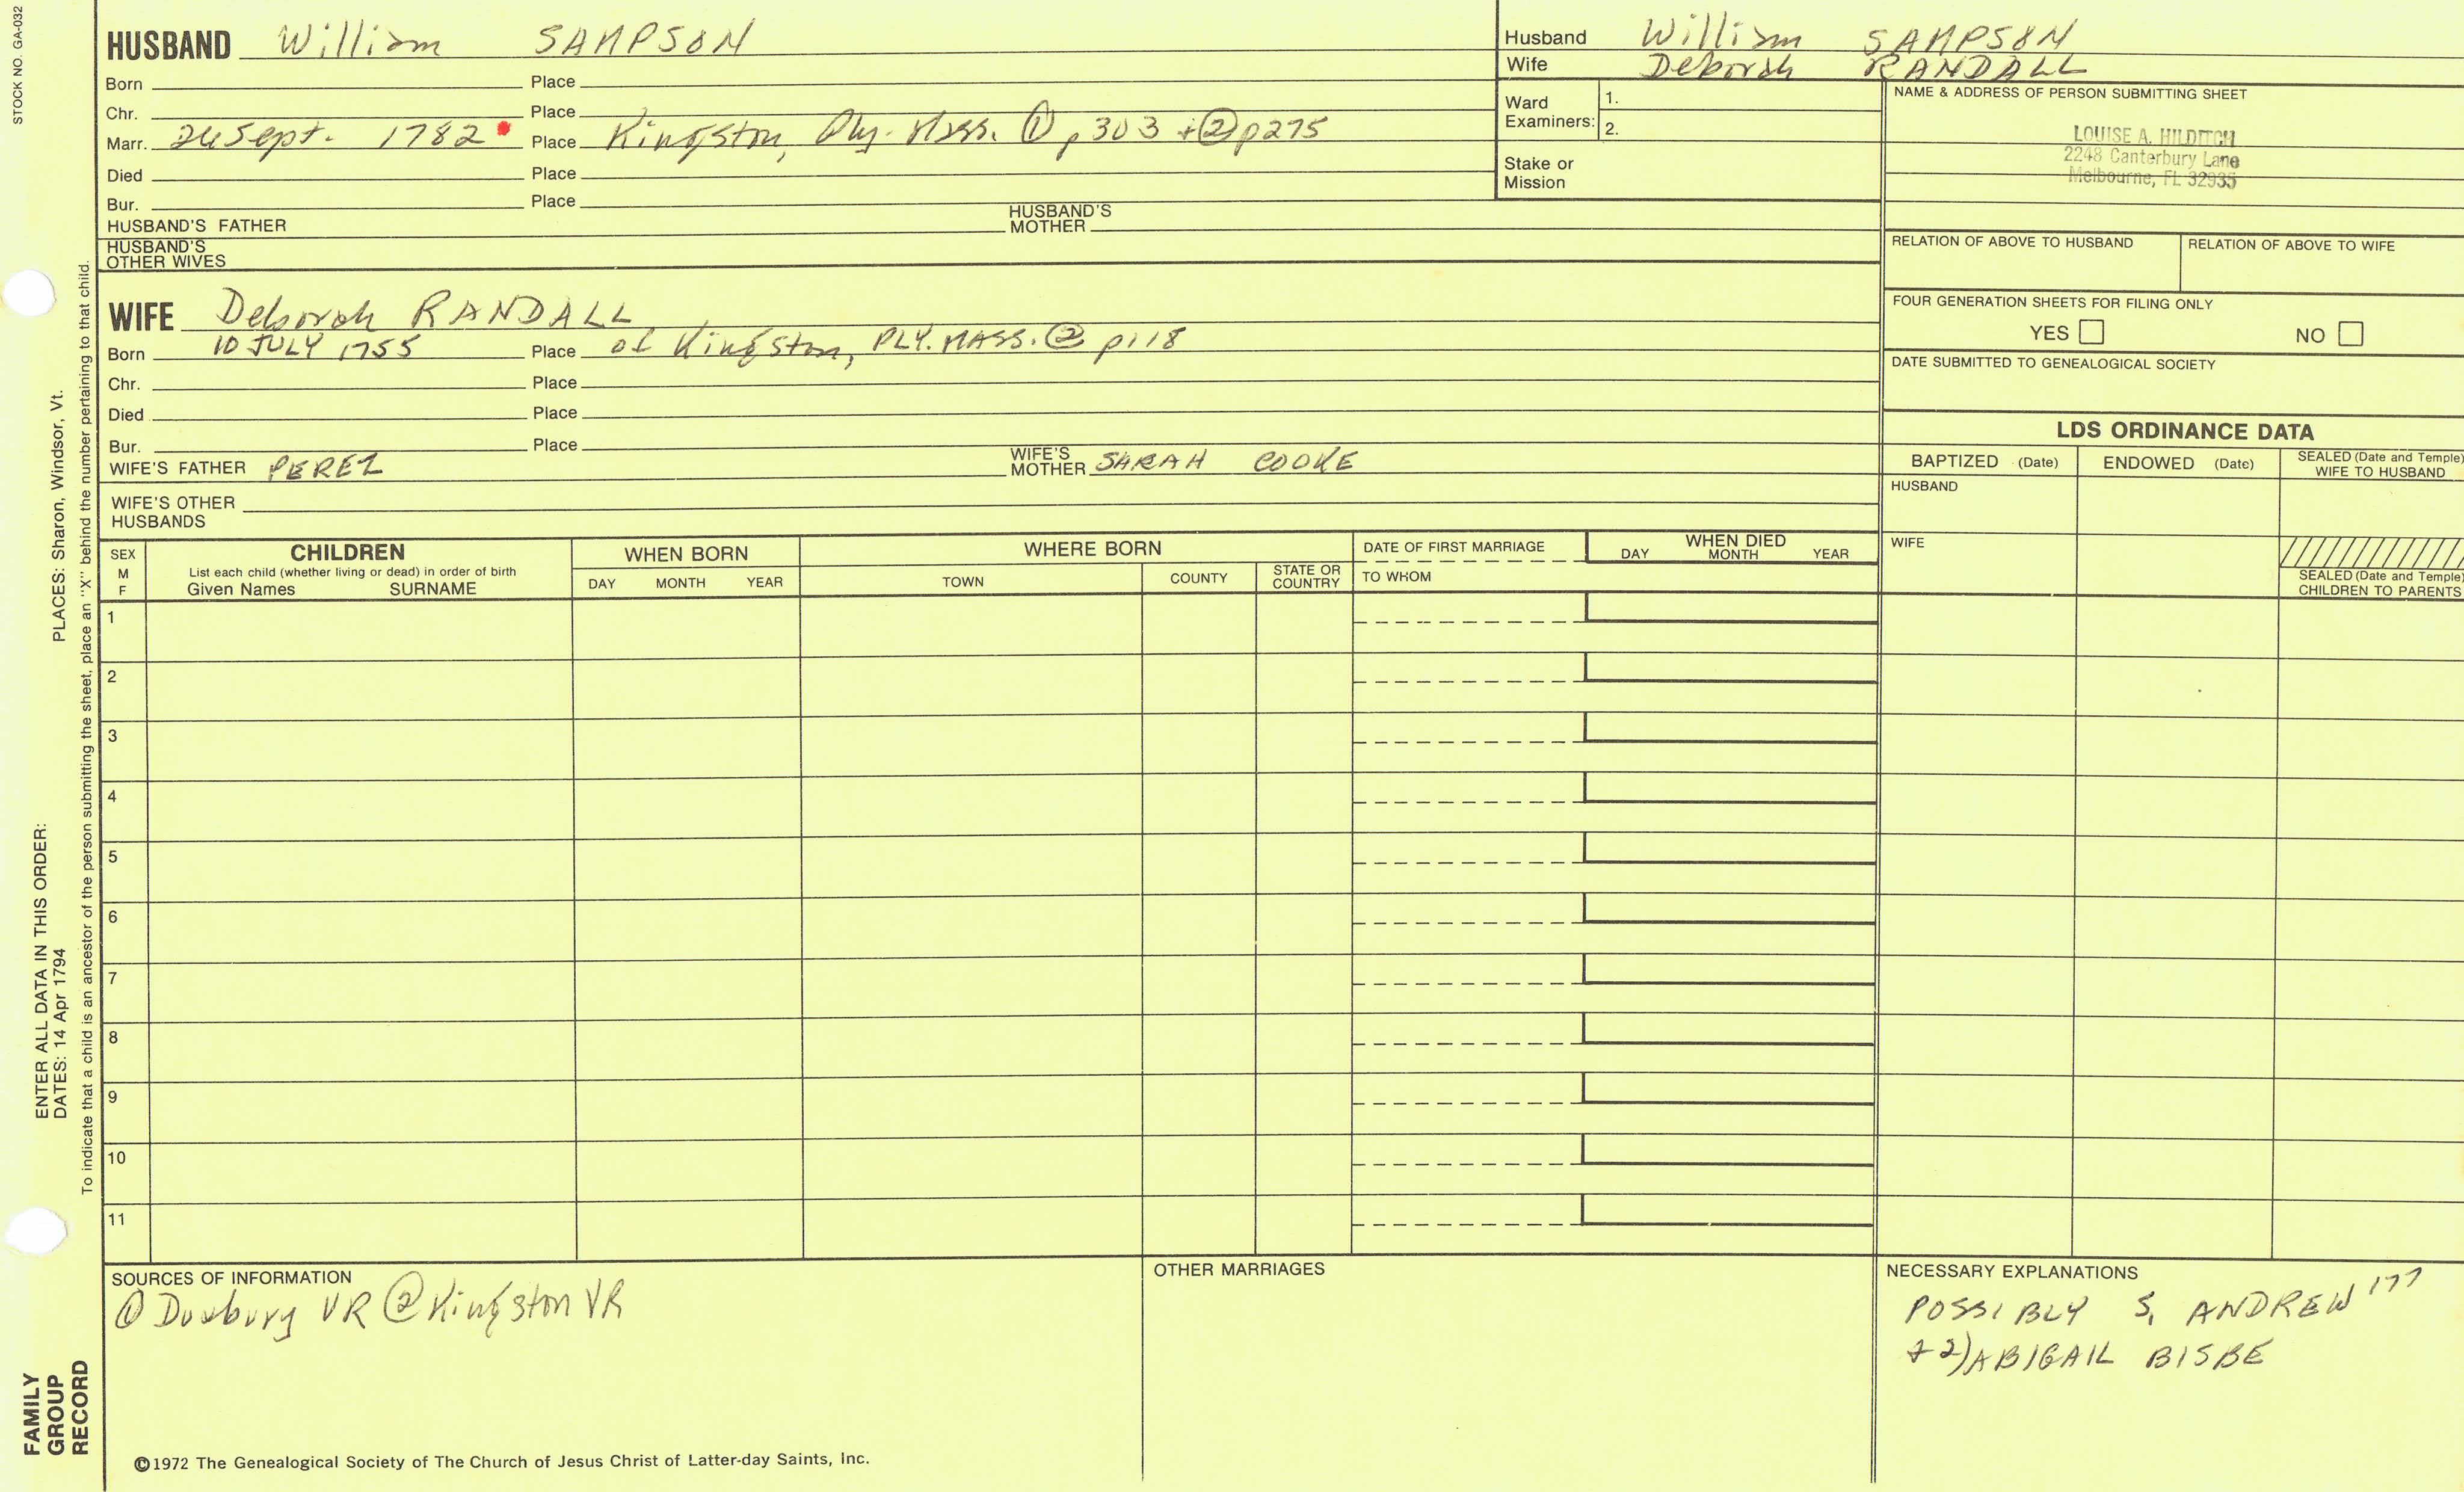 STOCK NO. GA-032
HUSBAND William SAMPSON
Born Place
Chr. Place
Marr. 24 Sept. 1782 Place Kingston, Ply. Mass. ① p303 + ② p275
Died Place
Bur. Place
HUSBAND'S FATHER HUSBAND'S MOTHER
HUSBAND'S OTHER WIVES
Husband William SAMPSON
Wife Deborah RANDALL
Ward Examiners: 1.
2.
Stake or Mission
NAME & ADDRESS OF PERSON SUBMITTING SHEET
LOUISE A. HILDITCH
2248 Canterbury Lane
Melbourne, FL 32935
RELATION OF ABOVE TO HUSBAND RELATION OF ABOVE TO WIFE
FOUR GENERATION SHEETS FOR FILING ONLY
YES NO
DATE SUBMITTED TO GENEALOGICAL SOCIETY
WIFE Deborah RANDALL
Born 10 JULY 1755 Place of Kingston, PLY. MASS. ② p118
Chr. Place
Died Place
Bur. Place
WIFE'S FATHER PEREZ WIFE'S MOTHER SARAH COOKE
WIFE'S OTHER HUSBANDS
LDS ORDINANCE DATA
BAPTIZED (Date) ENDOWED (Date) SEALED (Date and Temple) WIFE TO HUSBAND
HUSBAND
WIFE
SEALED (Date and Temple) CHILDREN TO PARENTS
SEX M F
CHILDREN
List each child (whether living or dead) in order of birth
Given Names SURNAME
WHEN BORN
DAY MONTH YEAR
WHERE BORN
TOWN COUNTY STATE OR COUNTRY
DATE OF FIRST MARRIAGE
TO WHOM
WHEN DIED
DAY MONTH YEAR
1
2
3
4
5
6
7
8
9
10
11
SOURCES OF INFORMATION
① Duxbury VR ② Kingston VR
OTHER MARRIAGES
NECESSARY EXPLANATIONS
POSSIBLY S, ANDREW 177
+ 2) ABIGAIL BISBE
©1972 The Genealogical Society of The Church of Jesus Christ of Latter-day Saints, Inc.
FAMILY GROUP RECORD
ENTER ALL DATA IN THIS ORDER:
DATES: 14 Apr 1794 PLACES: Sharon, Windsor, Vt.
To indicate that a child is an ancestor of the person submitting the sheet, place an "X" behind the number pertaining to that child.